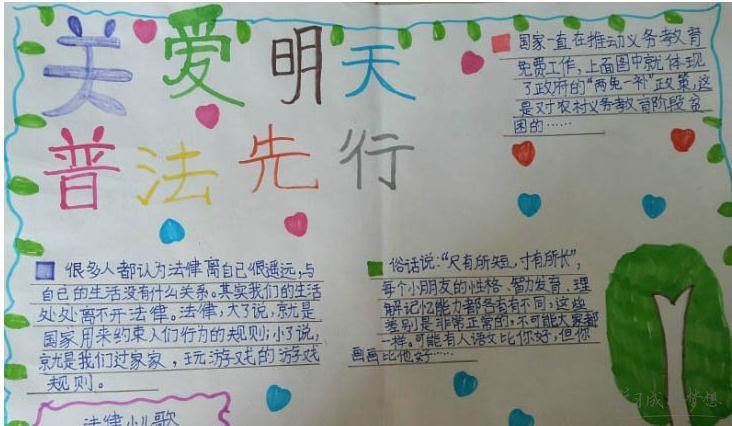 关爱明天
普法先行
国家一直在推动义务教育
免费工作，上面图中就体现
了政府的“两免一补”政策，这
是对农村义务教育阶段贫
困的……
很多人都认为法律离自己很遥远，与
自己的生活没有什么关系。其实我们的生活
处处离不开法律。法律，大了说，就是
国家用来约束人们行为的规则；小了说，
就是我们过家家，玩游戏的游戏
规则。
俗话说：“尺有所短，寸有所长”，
每个小朋友的性格、智力发育、理
解记忆能力都各有有不同，这些
差别是非常正常的，不可能大家都
一样。可能有人语文比你好，但你
画画比他好……
法律小歌
梦想